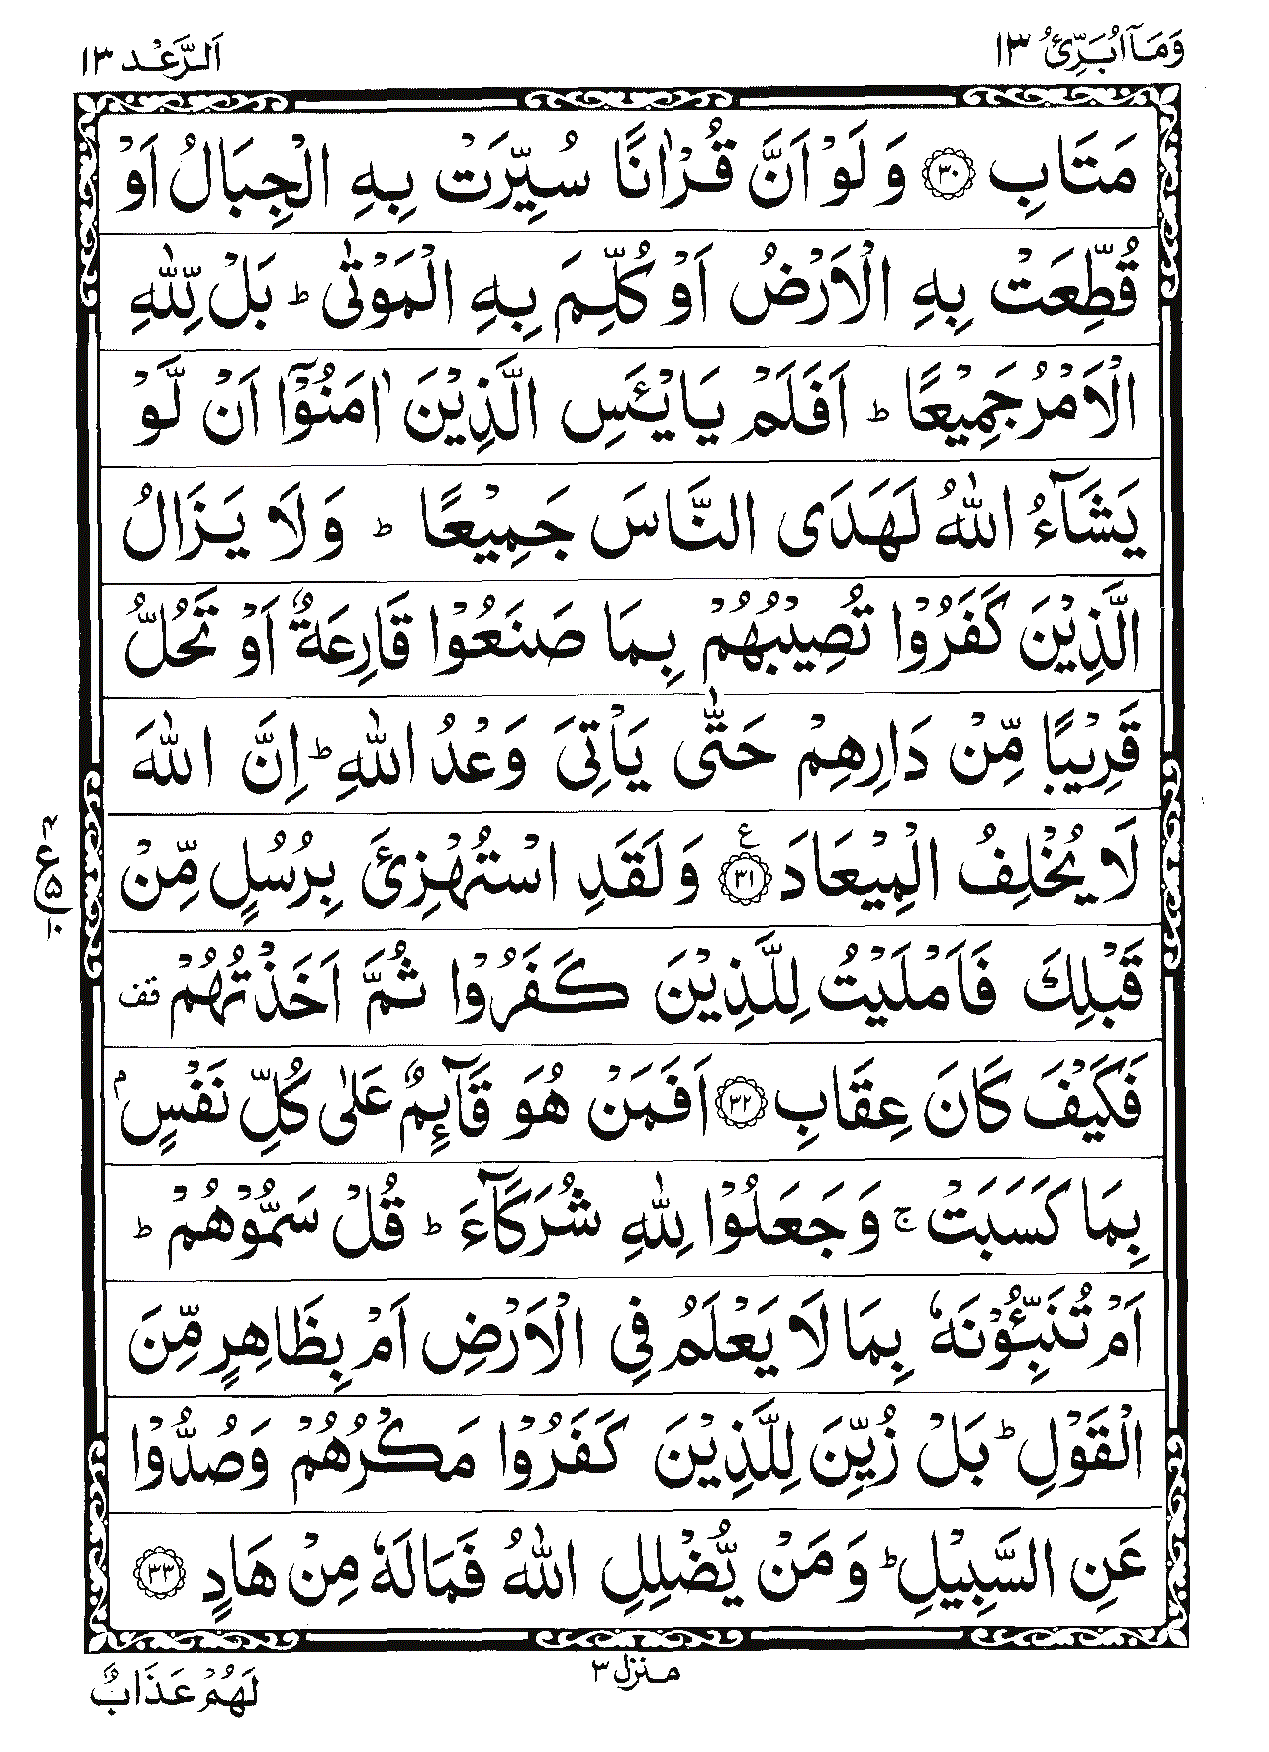 وَمَآ اُبَرِّئُ ١٣
اَلرَّعْد ١٣
مَتَابِ ﴿٣٠﴾ وَلَوْ اَنَّ قُرْاٰنًا سُيِّرَتْ بِهِ الْجِبَالُ اَوْ
قُطِّعَتْ بِهِ الْاَرْضُ اَوْ كُلِّمَ بِهِ الْمَوْتٰى ؕ بَلْ لِّلّٰهِ
الْاَمْرُ جَمِيْعًا ؕ اَفَلَمْ يَايْـَٔسِ الَّذِيْنَ اٰمَنُوْٓا اَنْ لَّوْ
يَشَآءُ اللّٰهُ لَهَدَى النَّاسَ جَمِيْعًا ؕ وَلَا يَزَالُ
الَّذِيْنَ كَفَرُوْا تُصِيْبُهُمْ بِمَا صَنَعُوْا قَارِعَةٌ اَوْ تَحُلُّ
قَرِيْبًا مِّنْ دَارِهِمْ حَتّٰى يَاْتِىَ وَعْدُ اللّٰهِ ؕ اِنَّ اللّٰهَ
لَا يُخْلِفُ الْمِيْعَادَ ﴿٣١﴾ ع وَلَقَدِ اسْتُهْزِئَ بِرُسُلٍ مِّنْ
قَبْلِكَ فَاَمْلَيْتُ لِلَّذِيْنَ كَفَرُوْا ثُمَّ اَخَذْتُهُمْ قف
فَكَيْفَ كَانَ عِقَابِ ﴿٣٢﴾ اَفَمَنْ هُوَ قَآئِمٌ عَلٰى كُلِّ نَفْسٍۭ
بِمَا كَسَبَتْ ۚ وَجَعَلُوْا لِلّٰهِ شُرَكَآءَ ؕ قُلْ سَمُّوْهُمْ ؕ
اَمْ تُنَبِّـُٔوْنَهٗ بِمَا لَا يَعْلَمُ فِى الْاَرْضِ اَمْ بِظَاهِرٍ مِّنَ
الْقَوْلِ ؕ بَلْ زُيِّنَ لِلَّذِيْنَ كَفَرُوْا مَكْرُهُمْ وَصُدُّوْا
عَنِ السَّبِيْلِ ؕ وَمَنْ يُّضْلِلِ اللّٰهُ فَمَا لَهٗ مِنْ هَادٍ ﴿٣٣﴾
٤
ع ٥
١٠
منزل ٣
لَهُمْ عَذَابٌ